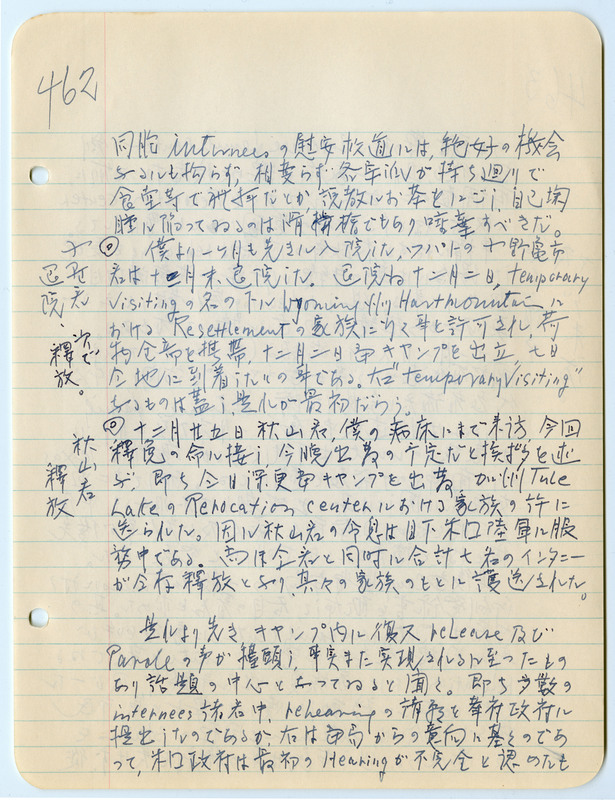 462
同胞 internees の慰安報道には、絶好の機会
なるにも拘らず、相変らず各宗派が持ち廻りで
食堂等で礼拝だとか説教にお茶をにごし、自己
陥ってゐるのは滑稽でもあり唾棄すべきだ。
矢野君
退院、次で
釈放。
⊙ 僕より一ヶ月も先きに入院した、ワハトの矢野亀市
君は十一月末、退院した。退院和十二月二日、temporary
visiting の名の下に Wyoming 州 Hart mountain に
おける Resettlement の家族に行く事を許可され、荷
物全部を携帯、十二月二日当キャンプを出立、七日
仝地に到着したとの事である。右 "temporary Visiting"
なるものは蓋し是れが最初だらう。
秋山君
釋放
⊙ 十二月廿五日秋山君、僕の病床にまで来訪、今回
釋免の命に接し今晩出發の予定だと挨拶を述
ぶ、即ち今日深更当キャンプを出發、加州 Tule
Lake の Relocation center における家族の許に
送られた。因に秋山君の令息は目下米国陸軍に服
務中である。尚ほ仝君と同時に合計七名のインタニー
が今夜釋放となり、其々の家族のもとに護送された。
是れより先き キャンプ内に復又 release 及び
Parole の声が擡頭し、事実また実現されるに至つたもの
あり話題の中心となつてゐると聞く。即ち多数の
internees 諸君中、rehearing の請願を華府政府に
提出したのであるが、右は当局からの意向に基くのであ
つて、米国政府は最初の Hearing が不完全と認めたも